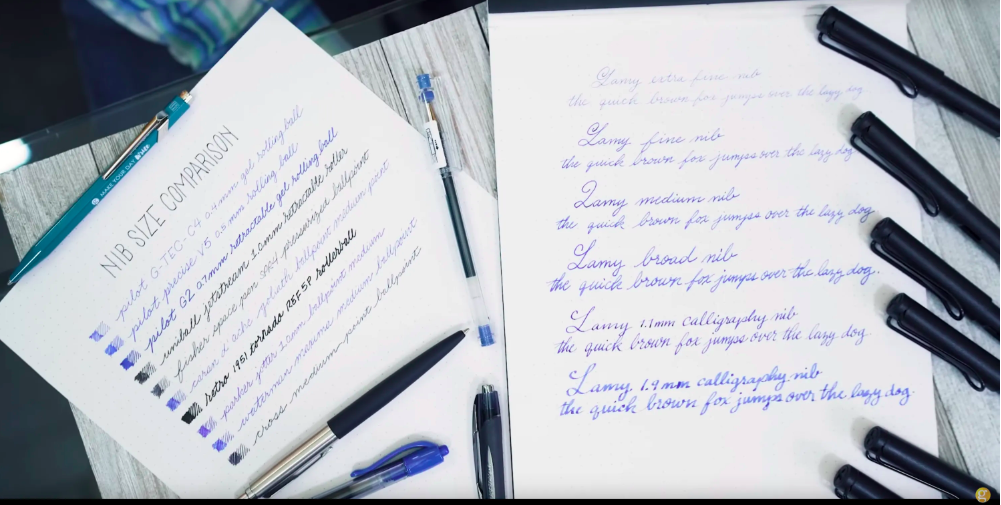 NIB SIZE COMPARISON
pilot G-TEC-C4 0.4mm gel rolling ball
pilot precise V5 0.5mm rolling ball
pilot G2 0.7mm retractable gel rolling ball
uniball jetstream 1.0mm retractable roller
fisher space pen SPR4 pressurized ballpoint
caran d'ache goliath ballpoint medium point
retro 1951 tornado REF 5P rollerball
parker jotter 1.0mm ballpoint medium
waterman medium ballpoint
cross medium point ballpoint
MAKE YOUR DAY
Lamy extra fine nib
the quick brown fox jumps over the lazy dog
Lamy fine nib
the quick brown fox jumps over the lazy dog
Lamy medium nib
the quick brown fox jumps over the lazy dog
Lamy broad nib
the quick brown fox jumps over the lazy dog.
Lamy 1.1mm calligraphy nib
the quick brown fox jumps over the lazy dog
Lamy 1.9mm calligraphy nib
the quick brown fox jumps over the lazy dog.
g